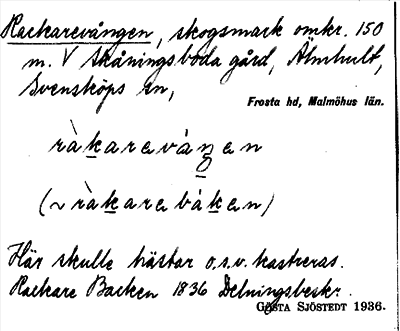 Rackarevången, skogsmark omkr. 150
m. V Skåningsboda gård, Älmhult,
Svensköps sn,
Frosta hd, Malmöhus län.
ràkareváŋen
(~ ràkarebákan)
Här skulle hästar o.s.v. kastreras.
Rackare Backen 1836 Delningsbeskr.
GÖSTA SJÖSTEDT 1936.